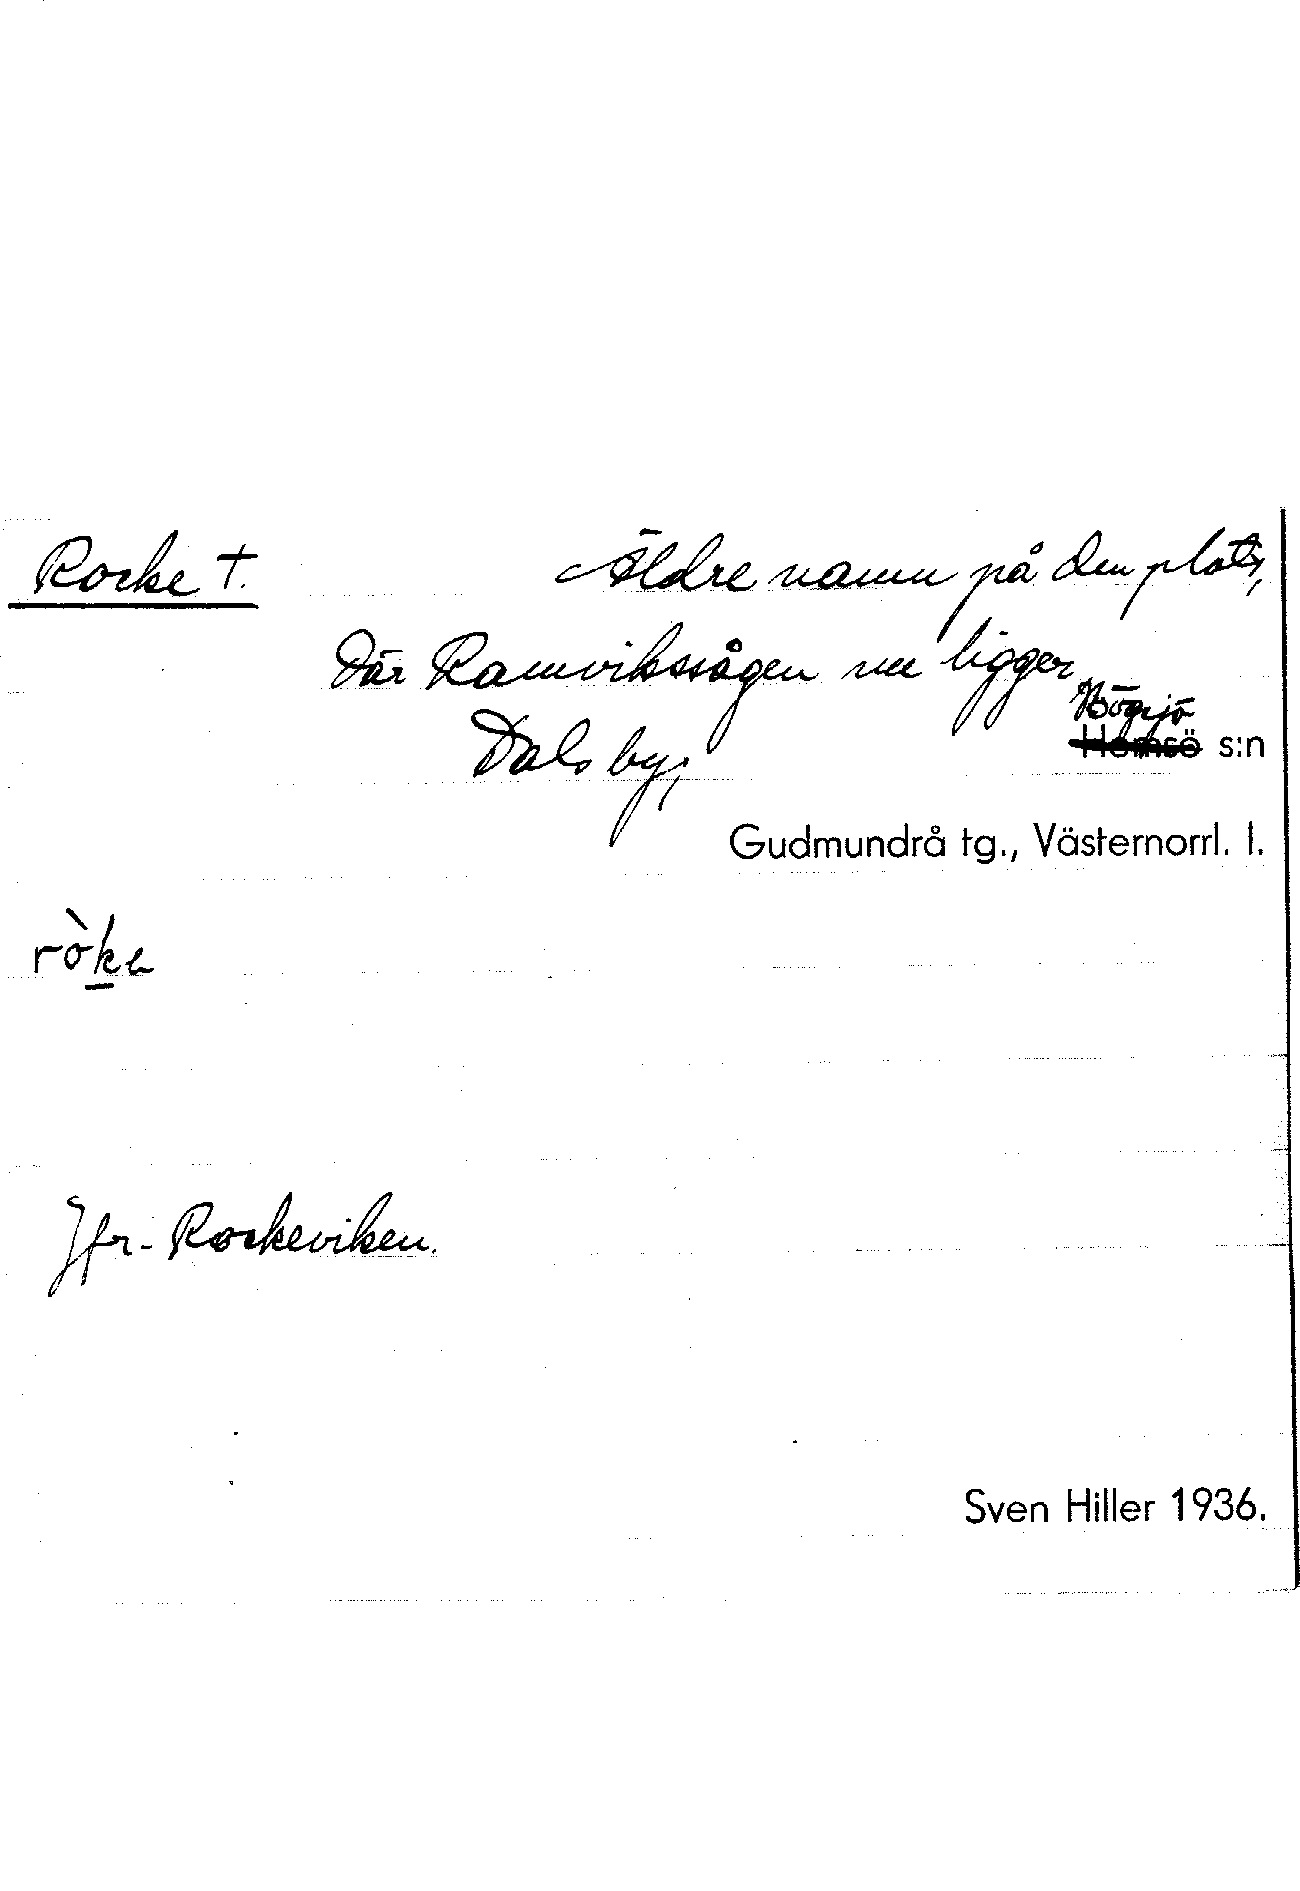 Rocke †. Äldre namn på den plats,
där Ramvikssågen nu ligger
Högsjö
Dals by, Hemsö s:n
Gudmundrå tg., Västernorrl. l.
ròke
Jfr. Rockeviken.
Sven Hiller 1936.